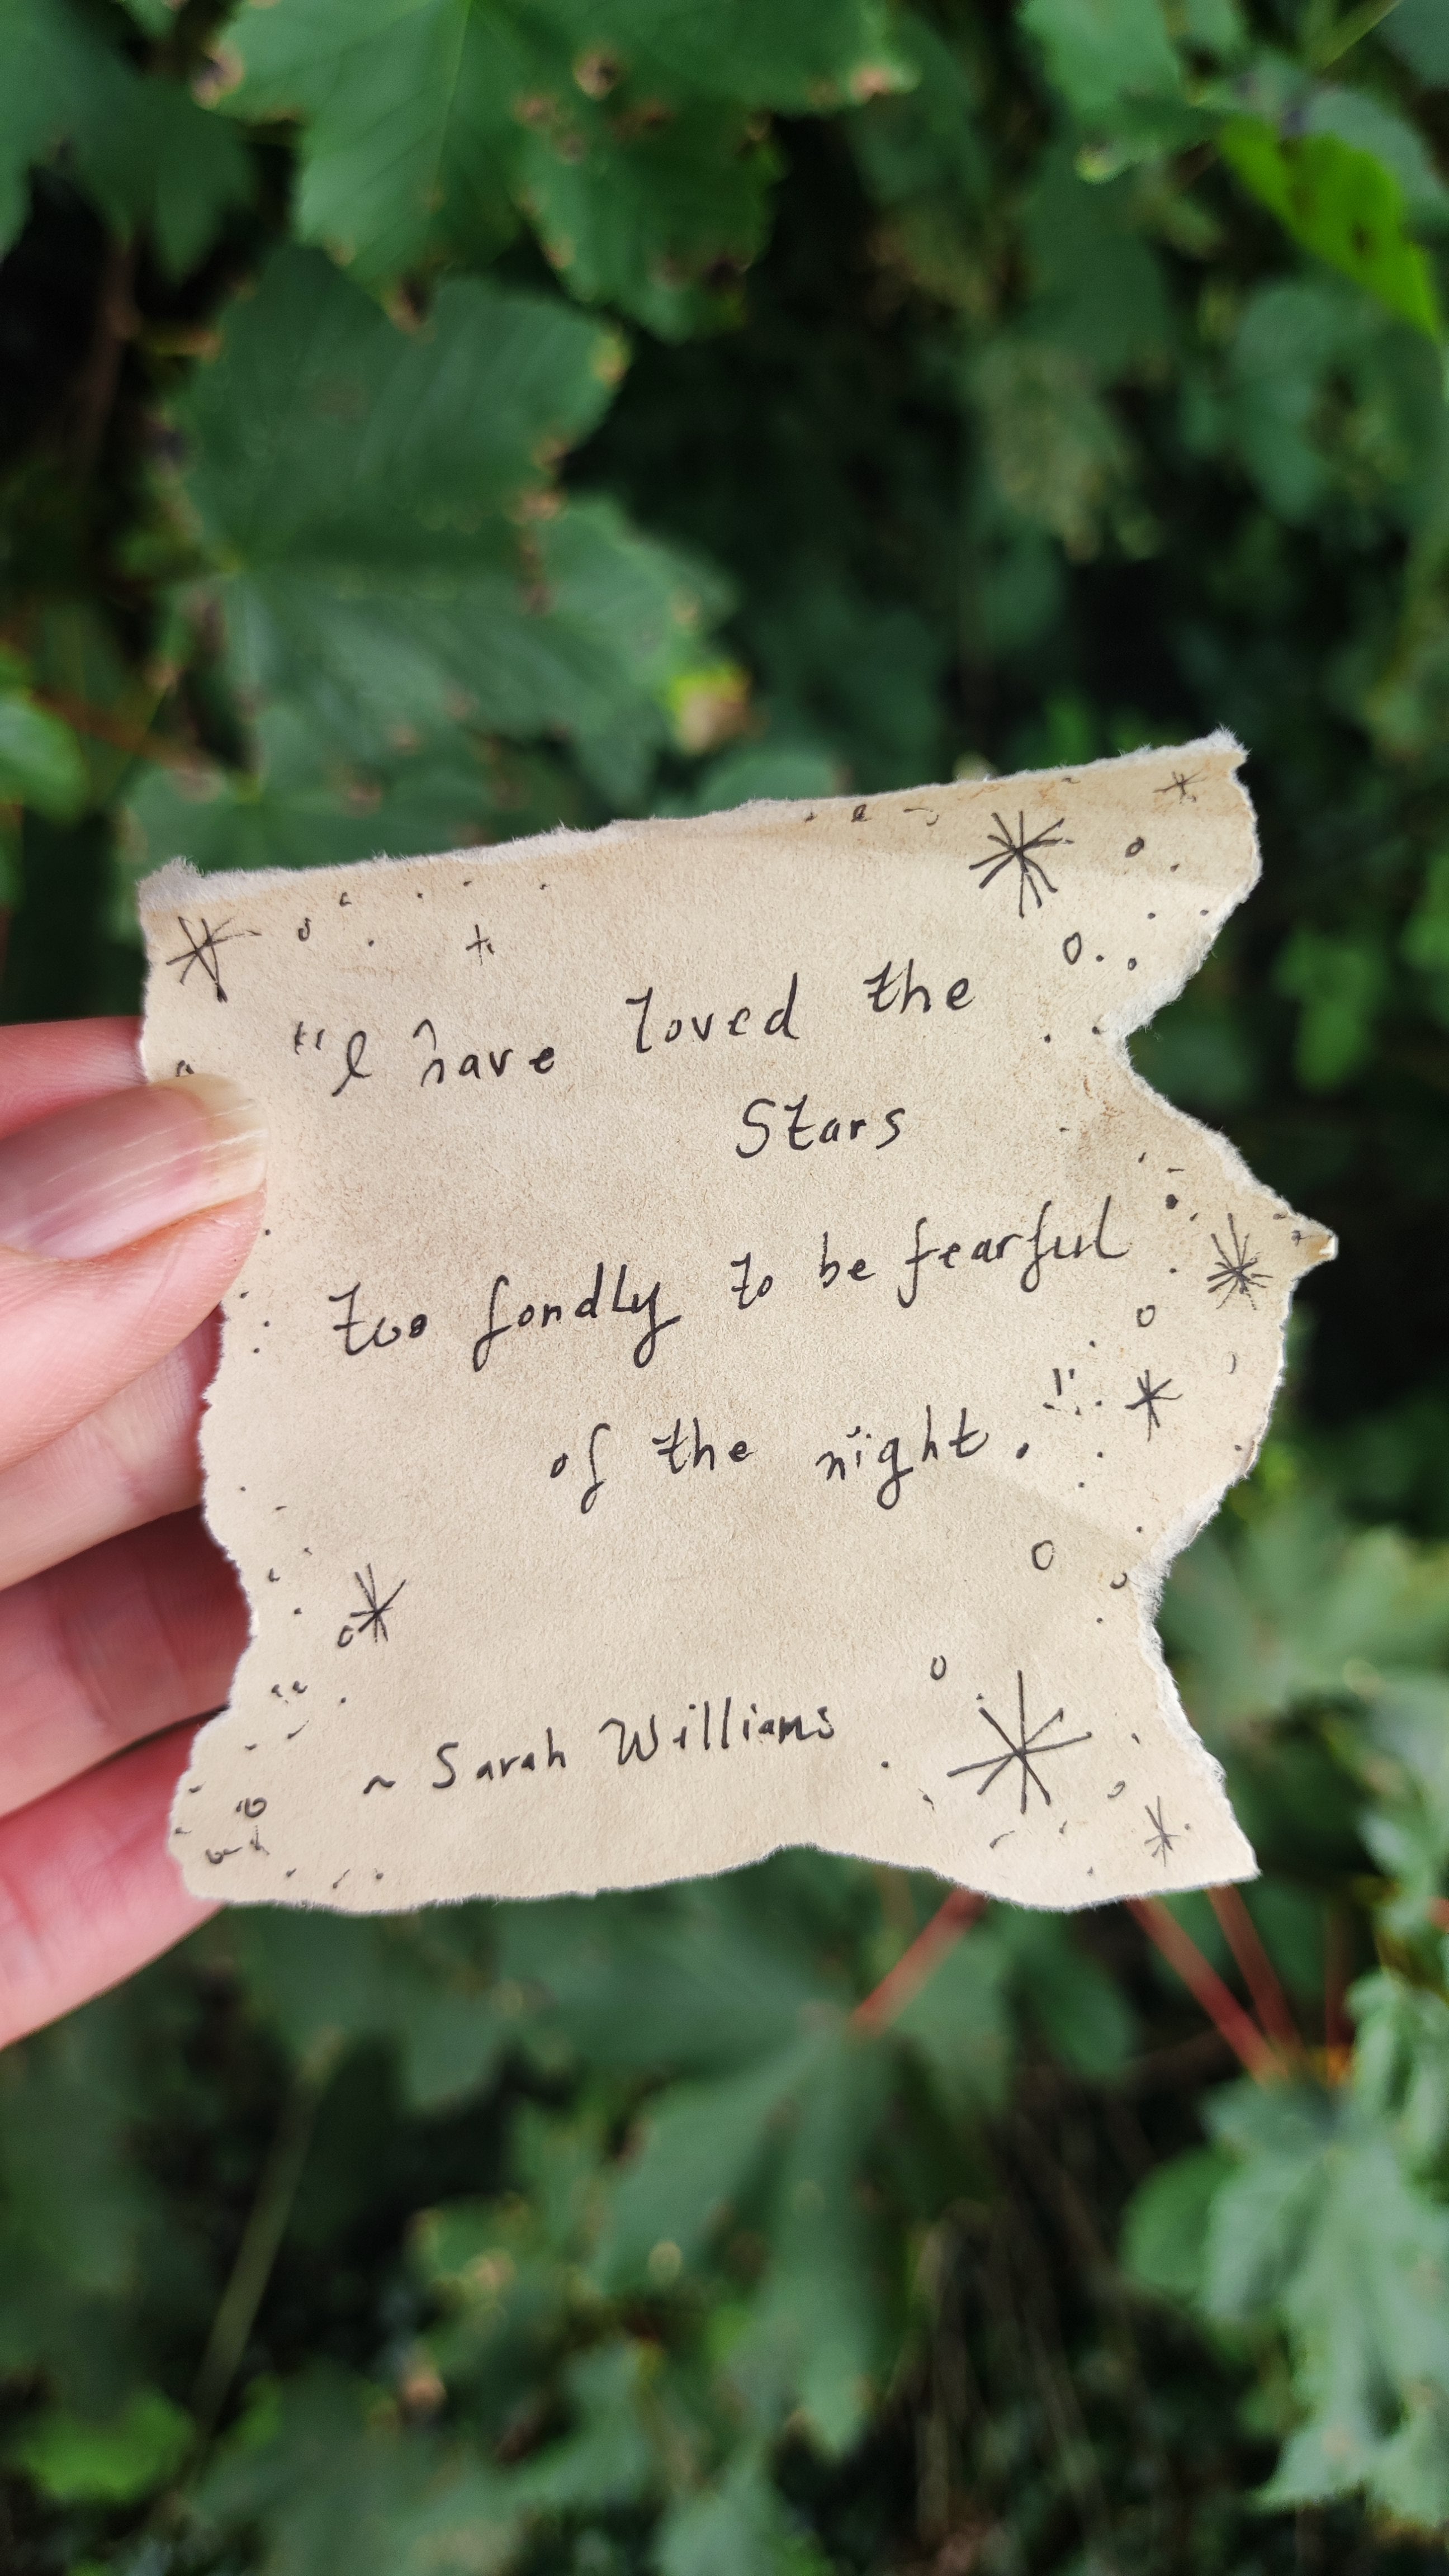 "I have loved the
Stars
too fondly to be fearful
of the night."
~ Sarah Williams